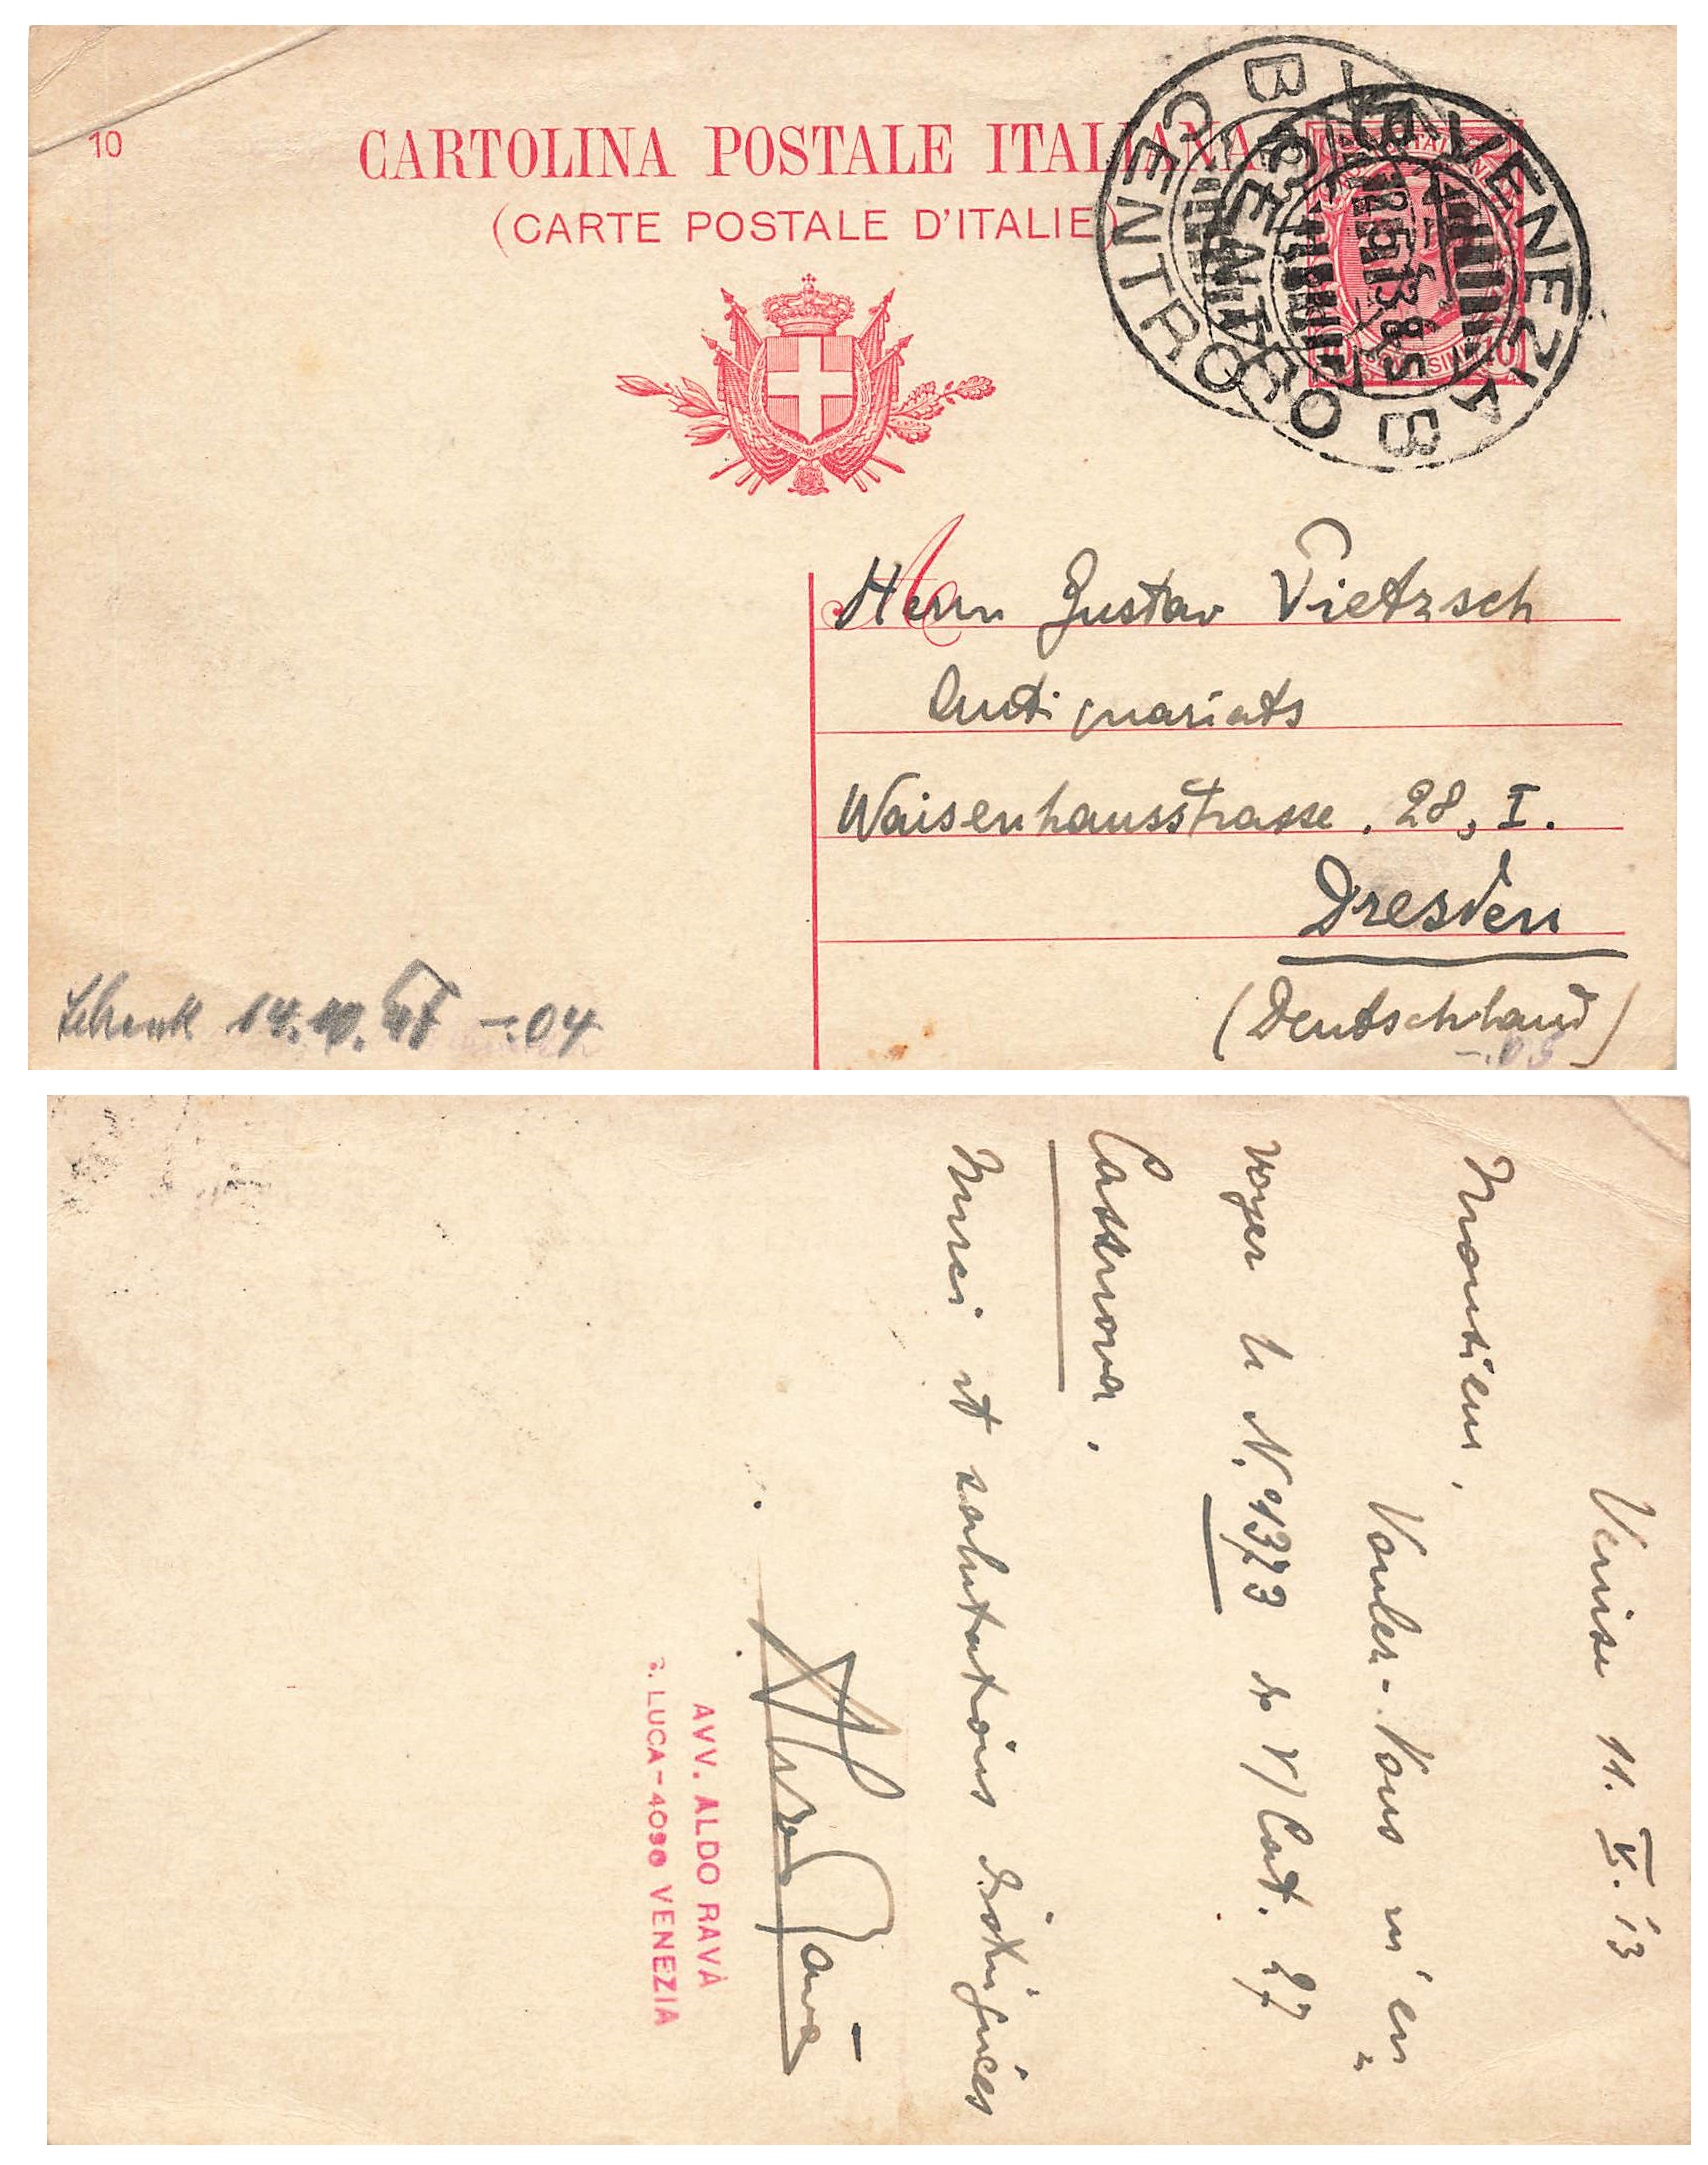 10
CARTOLINA POSTALE ITALIANA
(CARTE POSTALE D'ITALIE)
VENEZIA
CENTRO
B
12 5 13 8 S
Herrn Gustav Pietzsch
Antiquariats
Waisenhausstrasse. 28, I.
Dresden
(Deutschland)
Schenk 14.10. -.04
Venise 11. V. 13
Monsieur,
Voulez-Vous m'en
voyer le N.° 1373 de V/Cat. 97
Casanova.
Merci et salutations distinguées
Aldo Ravà
AVV. ALDO RAVÀ
S. LUCA - 4090 VENEZIA